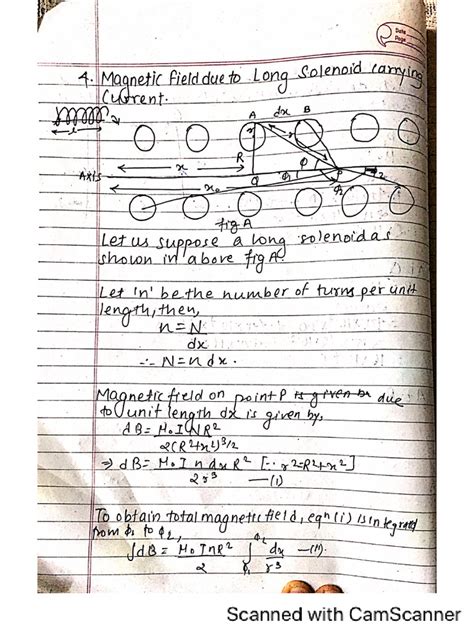 Date
Page
4. Magnetic field due to Long Solenoid carrying
Current.
A dx B
r r
R x φ
Axis Q φ₁ P φ₂
x₀
fig A
Let us suppose a long solenoid as
shown in above fig A.
Let 'n' be the number of turns per unit
length, then,
n = N
dx
∴ N = n dx.
Magnetic field on point P is given by due
to unit length dx is given by,
dB = μ₀ I N R²
2(R²+x²)^3/2
⇒ dB = μ₀ I n dx R² [∵ r²=R²+x²]
2r³ —(i)
To obtain total magnetic field, eqⁿ (i) is integrated
from φ₁ to φ₂,
∫dB = μ₀ I n R² ∫ φ₂ φ₁ dx —(ii).
2 r³
Scanned with CamScanner